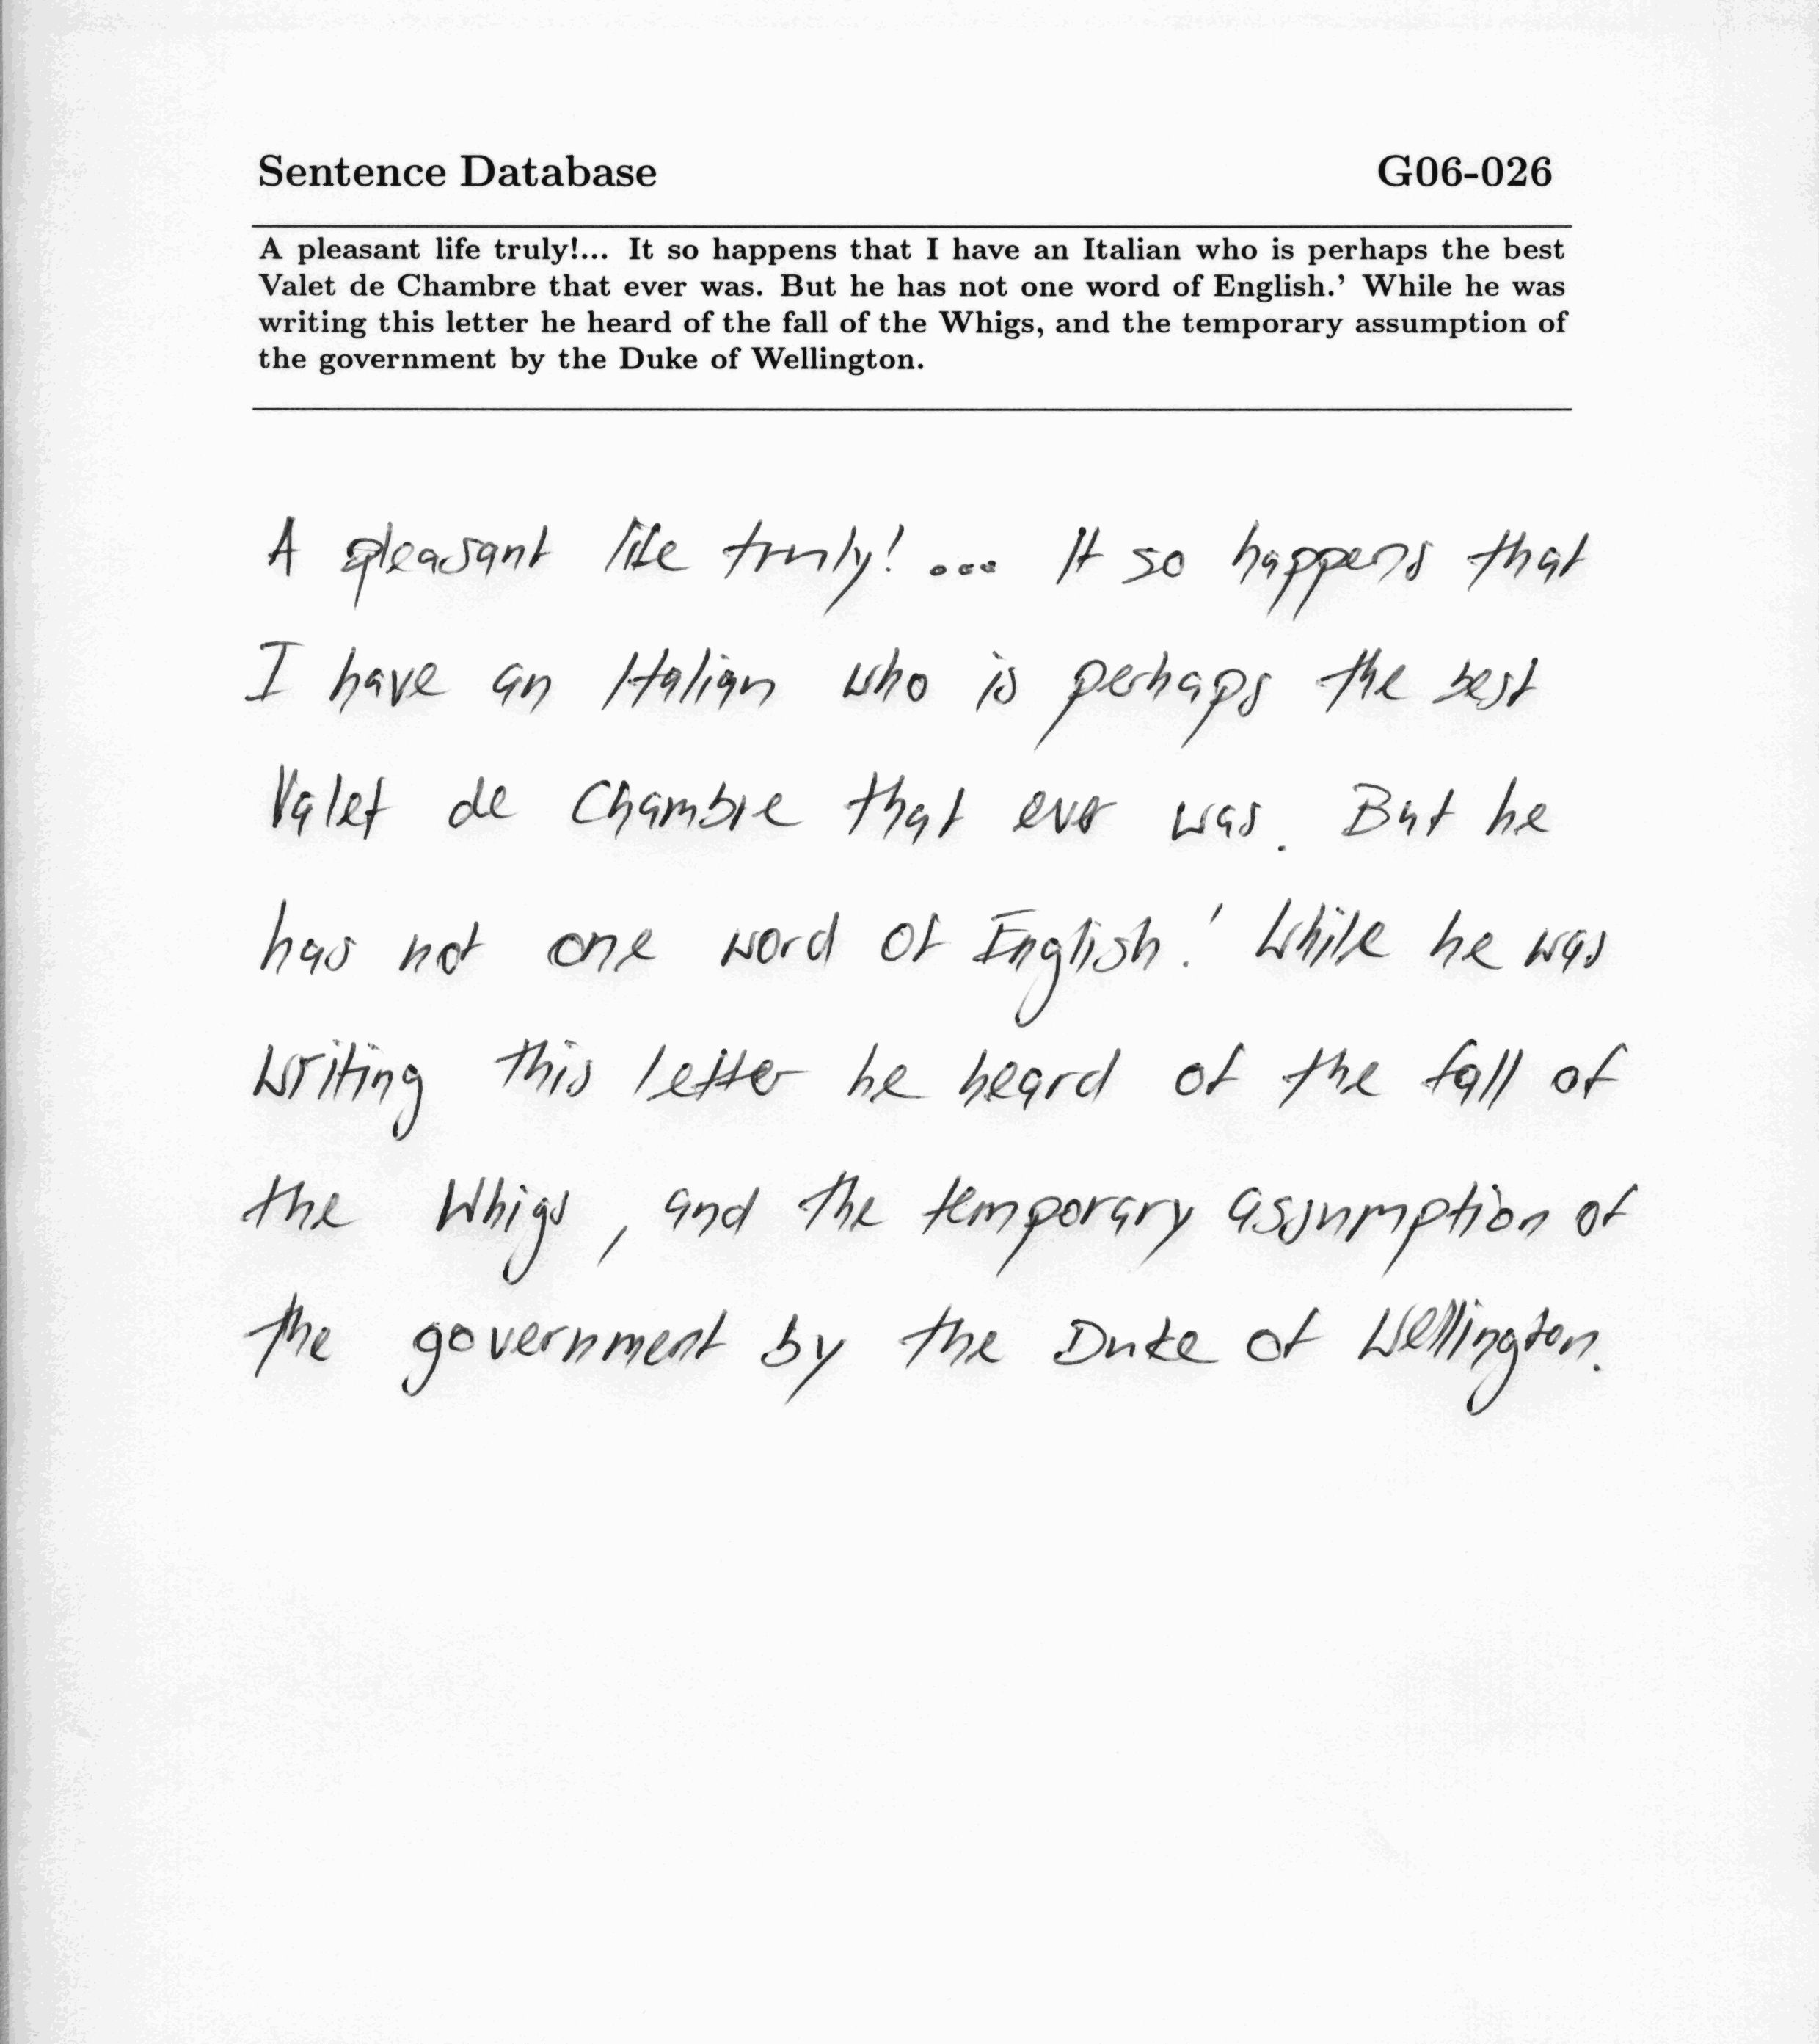 Sentence Database G06-026
A pleasant life truly!... It so happens that I have an Italian who is perhaps the best
Valet de Chambre that ever was. But he has not one word of English.' While he was
writing this letter he heard of the fall of the Whigs, and the temporary assumption of
the government by the Duke of Wellington.
A pleasant life truly! ... It so happens that
I have an Italian who is perhaps the best
Valet de Chambre that ever was. But he
has not one word of English.' While he was
writing this letter he heard of the fall of
the Whigs, and the temporary assumption of
the government by the Duke of Wellington.